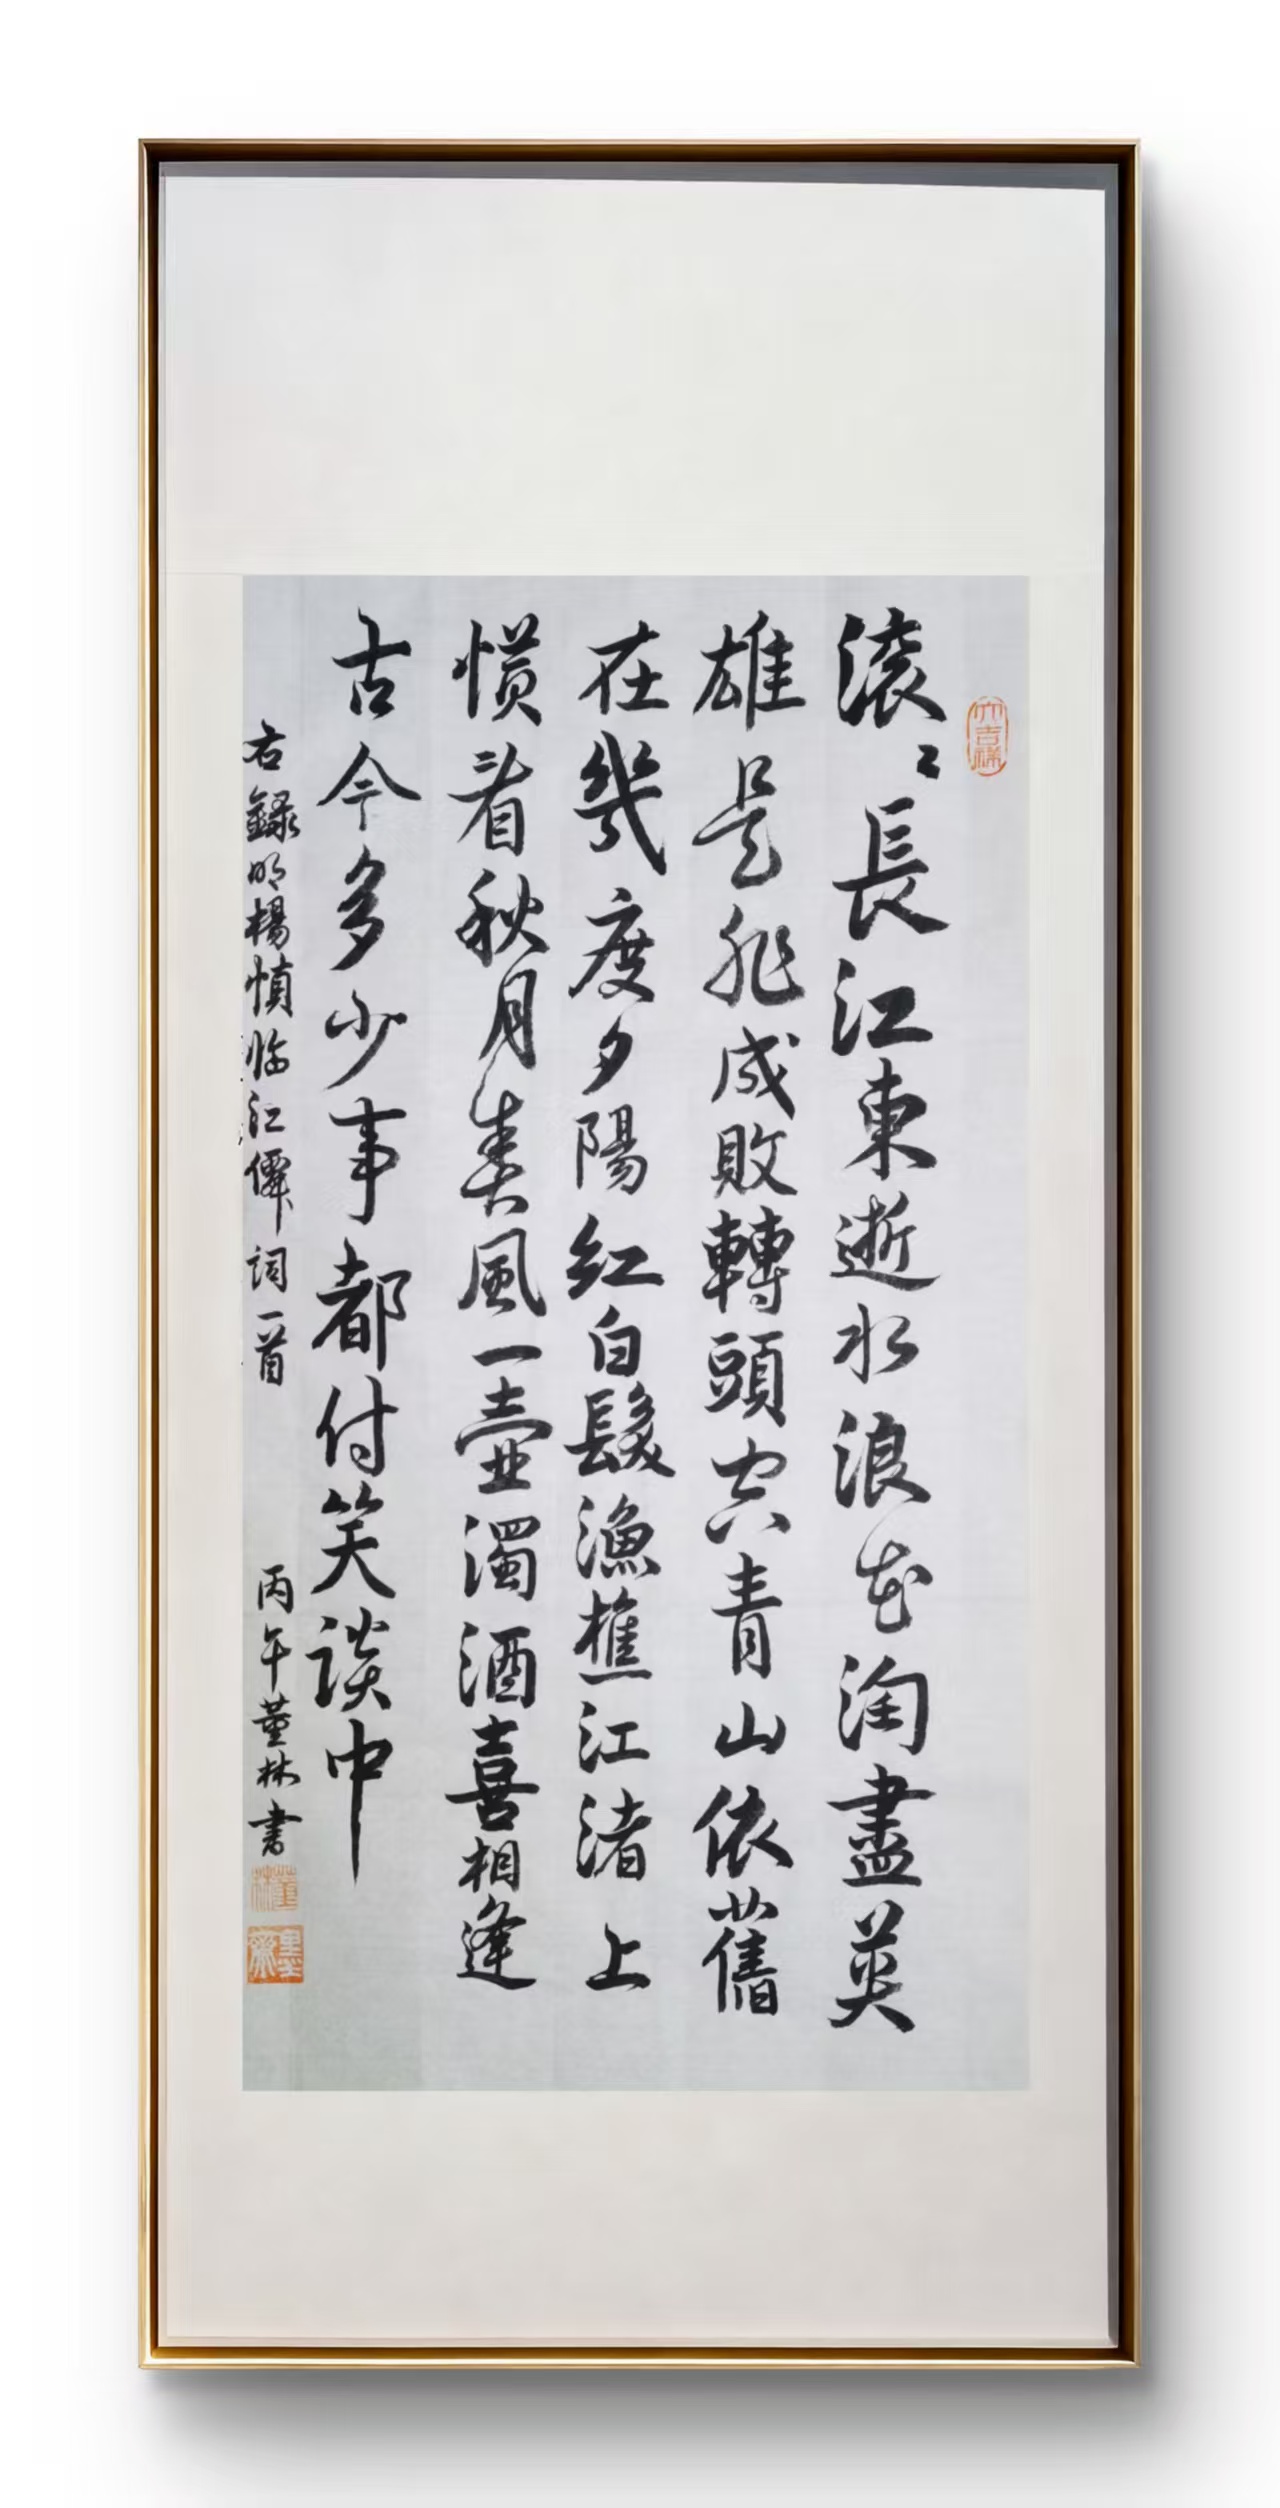 滚〻長江東逝水浪花淘盡英
雄是非成敗轉頭空青山依舊
在幾度夕陽紅白髮漁樵江渚上
惯看秋月春風一壺濁酒喜相逢
古今多少事都付笑談中
右録明楊慎临江僊詞一首
丙午董林书
大吉祥
董林
墨齋